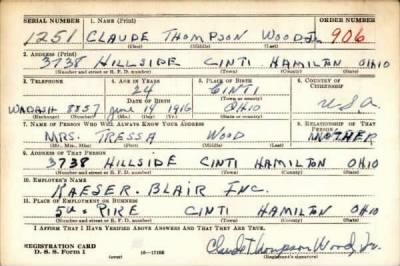 SERIAL NUMBER 1. NAME (Print) ORDER NUMBER
1251 CLAUDE THOMPSON WOOD Jr. 906
(First) (Middle) (Last)
2. ADDRESS (Print)
3738 HILLSIDE CINTI HAMILTON OHIO
(Number and street or R. F. D. number) (Town) (County) (State)
3. TELEPHONE 4. AGE IN YEARS 5. PLACE OF BIRTH 6. COUNTRY OF CITIZENSHIP
24 CINTI
DATE OF BIRTH (Town or county)
WABASH 8857 June 19 1916 OHIO U.S.A.
(Exchange) (Number) (Mo.) (Day) (Yr.) (State or country)
7. NAME OF PERSON WHO WILL ALWAYS KNOW YOUR ADDRESS 8. RELATIONSHIP OF THAT PERSON
MRS. TRESSA WOOD MOTHER
(Mr., Mrs., Miss) (First) (Middle) (Last)
9. ADDRESS OF THAT PERSON
3738 HILLSIDE CINTI HAMILTON OHIO
(Number and street or R. F. D. number) (Town) (County) (State)
10. EMPLOYER'S NAME
KAESER-BLAIR INC.
11. PLACE OF EMPLOYMENT OR BUSINESS
5th PIKE CINTI HAMILTON OHIO
(Number and street or R. F. D. number) (Town) (County) (State)
I AFFIRM THAT I HAVE VERIFIED ABOVE ANSWERS AND THAT THEY ARE TRUE.
REGISTRATION CARD
D. S. S. Form 1 Claude Thompson Wood, Jr.
(Registrant's signature)